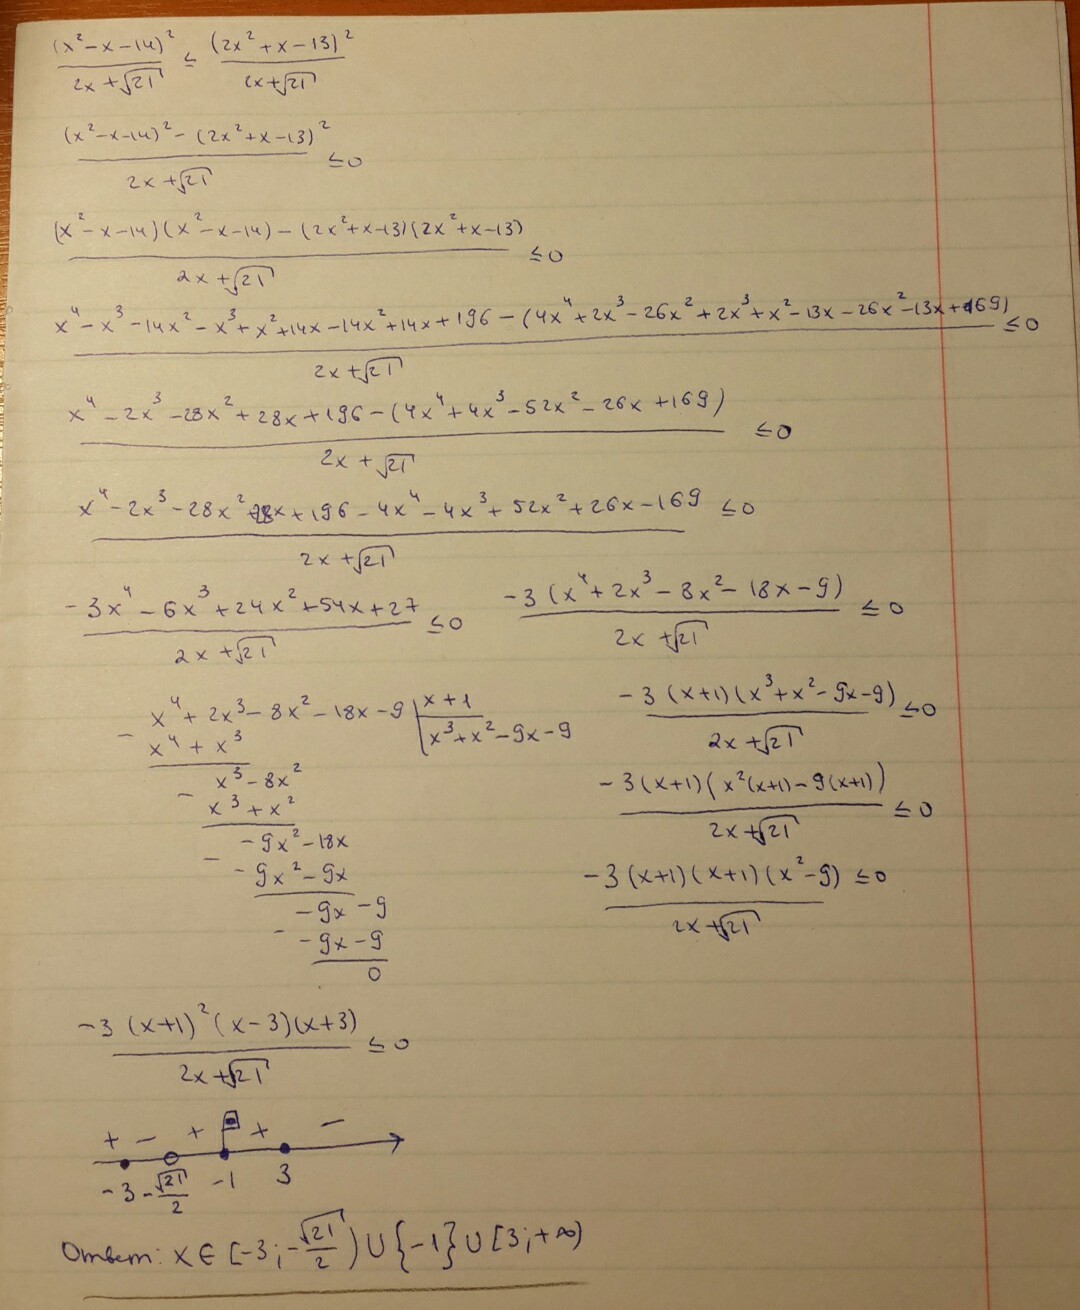 (x²-x-14)² / (2x+√21) ≤ (2x²+x-13)² / (2x+√21)
((x²-x-14)² - (2x²+x-13)²) / (2x+√21) ≤ 0
((x²-x-14)(x²-x-14) - (2x²+x-13)(2x²+x-13)) / (2x+√21) ≤ 0
(x⁴-x³-14x²-x³+x²+14x-14x²+14x+196-(4x⁴+2x³-26x²+2x³+x²-13x-26x²-13x+169)) / (2x+√21) ≤ 0
(x⁴-2x³-28x²+28x+196-(4x⁴+4x³-52x²-26x+169)) / (2x+√21) ≤ 0
(x⁴-2x³-28x²+28x+196-4x⁴-4x³+52x²+26x-169) / (2x+√21) ≤ 0
(-3x⁴-6x³+24x²+54x+27) / (2x+√21) ≤ 0
-3(x⁴+2x³-8x²-18x-9) / (2x+√21) ≤ 0
x⁴+2x³-8x²-18x-9 | x+1
- x⁴+x³ | x³+x²-9x-9
x³-8x²
- x³+x²
-9x²-18x
- -9x²-9x
-9x-9
- -9x-9
0
-3(x+1)(x³+x²-9x-9) / (2x+√21) ≤ 0
-3(x+1)(x²(x+1)-9(x+1)) / (2x+√21) ≤ 0
-3(x+1)(x+1)(x²-9) / (2x+√21) ≤ 0
-3(x+1)²(x-3)(x+3) / (2x+√21) ≤ 0
+ - + + -
-3 -√21/2 -1 3
Ответ: x ∈ [-3; -√21/2) ∪ {-1} ∪ [3; +∞)